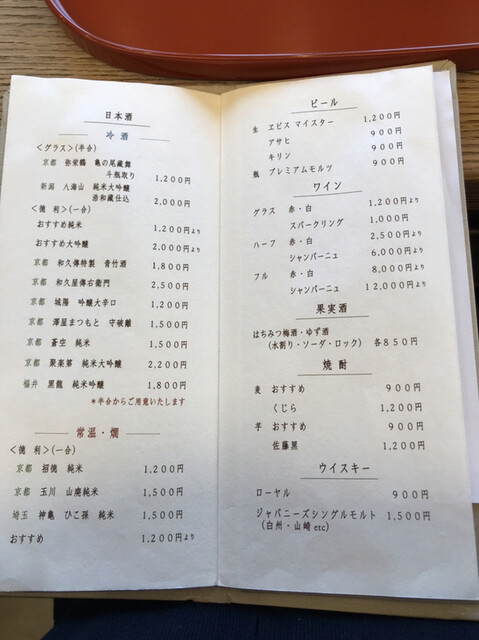 日本酒
冷酒
<グラス>(半合)
京都 弥栄鶴 亀の尾蔵舞
斗瓶取り 1,200円
新潟 八海山 純米大吟醸
浩和蔵仕込 2,000円
<徳利>(一合)
おすすめ純米 1,200円より
おすすめ大吟醸 2,000円より
京都 和久傳特製 青竹酒 1,800円
京都 和久屋傳右衛門 2,500円
京都 城陽 吟醸大辛口 1,200円
京都 澤屋まつもと 守破離 1,500円
京都 蒼空 純米 1,500円
京都 聚楽第 純米大吟醸 2,200円
福井 黒龍 純米吟醸 1,800円
*半合からご用意いたします
常温・燗
<徳利>(一合)
京都 招徳 純米 1,200円
京都 玉川 山廃純米 1,500円
埼玉 神亀 ひこ孫 純米 1,500円
おすすめ 1,200円より
ビール
生 ヱビス マイスター 1,200円
アサヒ 900円
キリン 900円
瓶 プレミアムモルツ 900円
ワイン
グラス 赤・白 1,200円より
スパークリング 1,000円
ハーフ 赤・白 2,500円より
シャンパーニュ 6,000円より
フル 赤・白 8,000円より
シャンパーニュ 12,000円より
果実酒
はちみつ梅酒・ゆず酒
(水割り・ソーダ・ロック) 各850円
焼酎
麦 おすすめ 900円
くじら 1,200円
芋 おすすめ 900円
佐藤黒 1,200円
ウイスキー
ローヤル 900円
ジャパニーズシングルモルト 1,500円
(白州・山崎 etc)